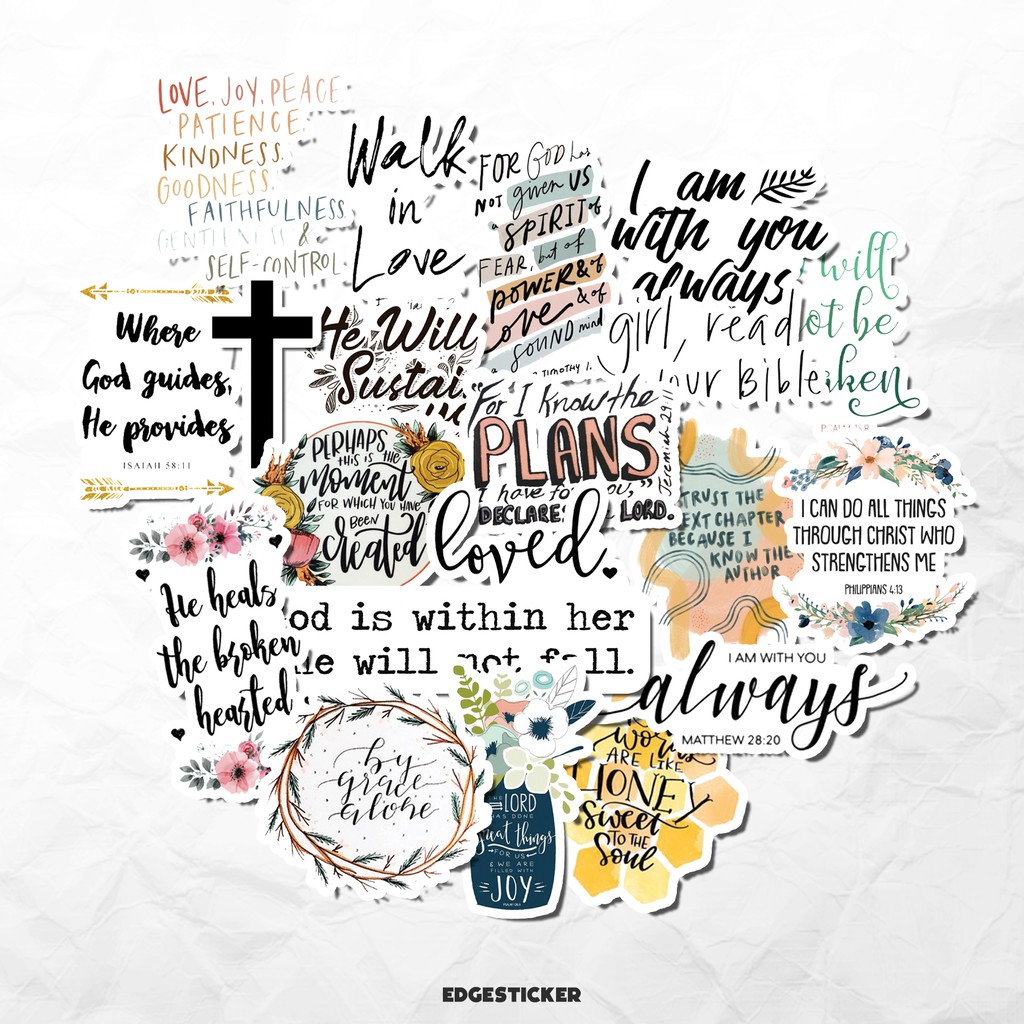 LOVE, JOY, PEACE
PATIENCE.
KINDNESS.
GOODNESS.
FAITHFULNESS
GENTLENESS &
SELF-CONTROL
Walk
in
Love
FOR GOD has
NOT given US
a SPIRIT of
FEAR, but of
POWER & of
love & of
SOUND mind
TIMOTHY 1.
I am
with you
always
will
ot be
ken
girl, read
ur Bible
Where
God guides,
He provides
ISAIAH 58:11
He Will
Sustai
"For I know the
PLANS
I have fo ou,"
DECLARE LORD.
Jeremiah 29:11
PERHAPS
this is the
moment
FOR WHICH YOU HAVE
BEEN
created
loved.
TRUST THE
EXT CHAPTER
BECAUSE I
KNOW THE
AUTHOR
I CAN DO ALL THINGS
THROUGH CHRIST WHO
STRENGTHENS ME
PHILIPPIANS 4:13
He heals
the broken
hearted
od is within her
he will not fall.
I AM WITH YOU
always
MATTHEW 28:20
by
grace
alone
THE LORD
HAS DONE
great things
FOR US
& WE ARE
FILLED WITH
JOY
Words
ARE LIKE
HONEY
sweet
TO THE
Soul
EDGESTICKER